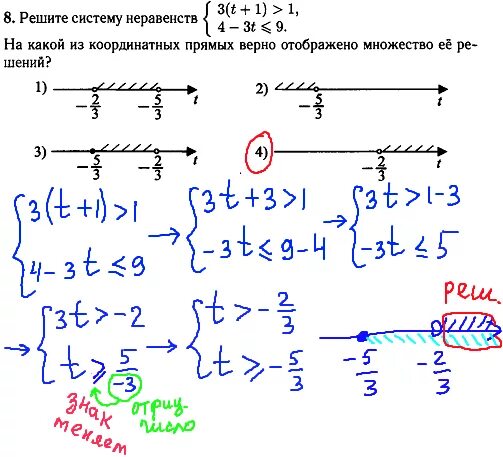 8. Решите систему неравенств { 3(t + 1) > 1,
4 − 3t ⩽ 9.
На какой из координатных прямых верно отображено множество её ре-
шений?
1) −2/3 −5/3 t
2) −5/3 t
3) −5/3 −2/3 t
4) −2/3 t
{ 3(t+1) > 1 → { 3t + 3 > 1 → { 3t > 1 − 3
4 − 3t ≤ 9 −3t ≤ 9 − 4 −3t ≤ 5
→ { 3t > −2 → { t > −2/3
t ≥ 5/−3 t ≥ −5/3
Реш.
−5/3 −2/3
знак
меняем
отриц.
число